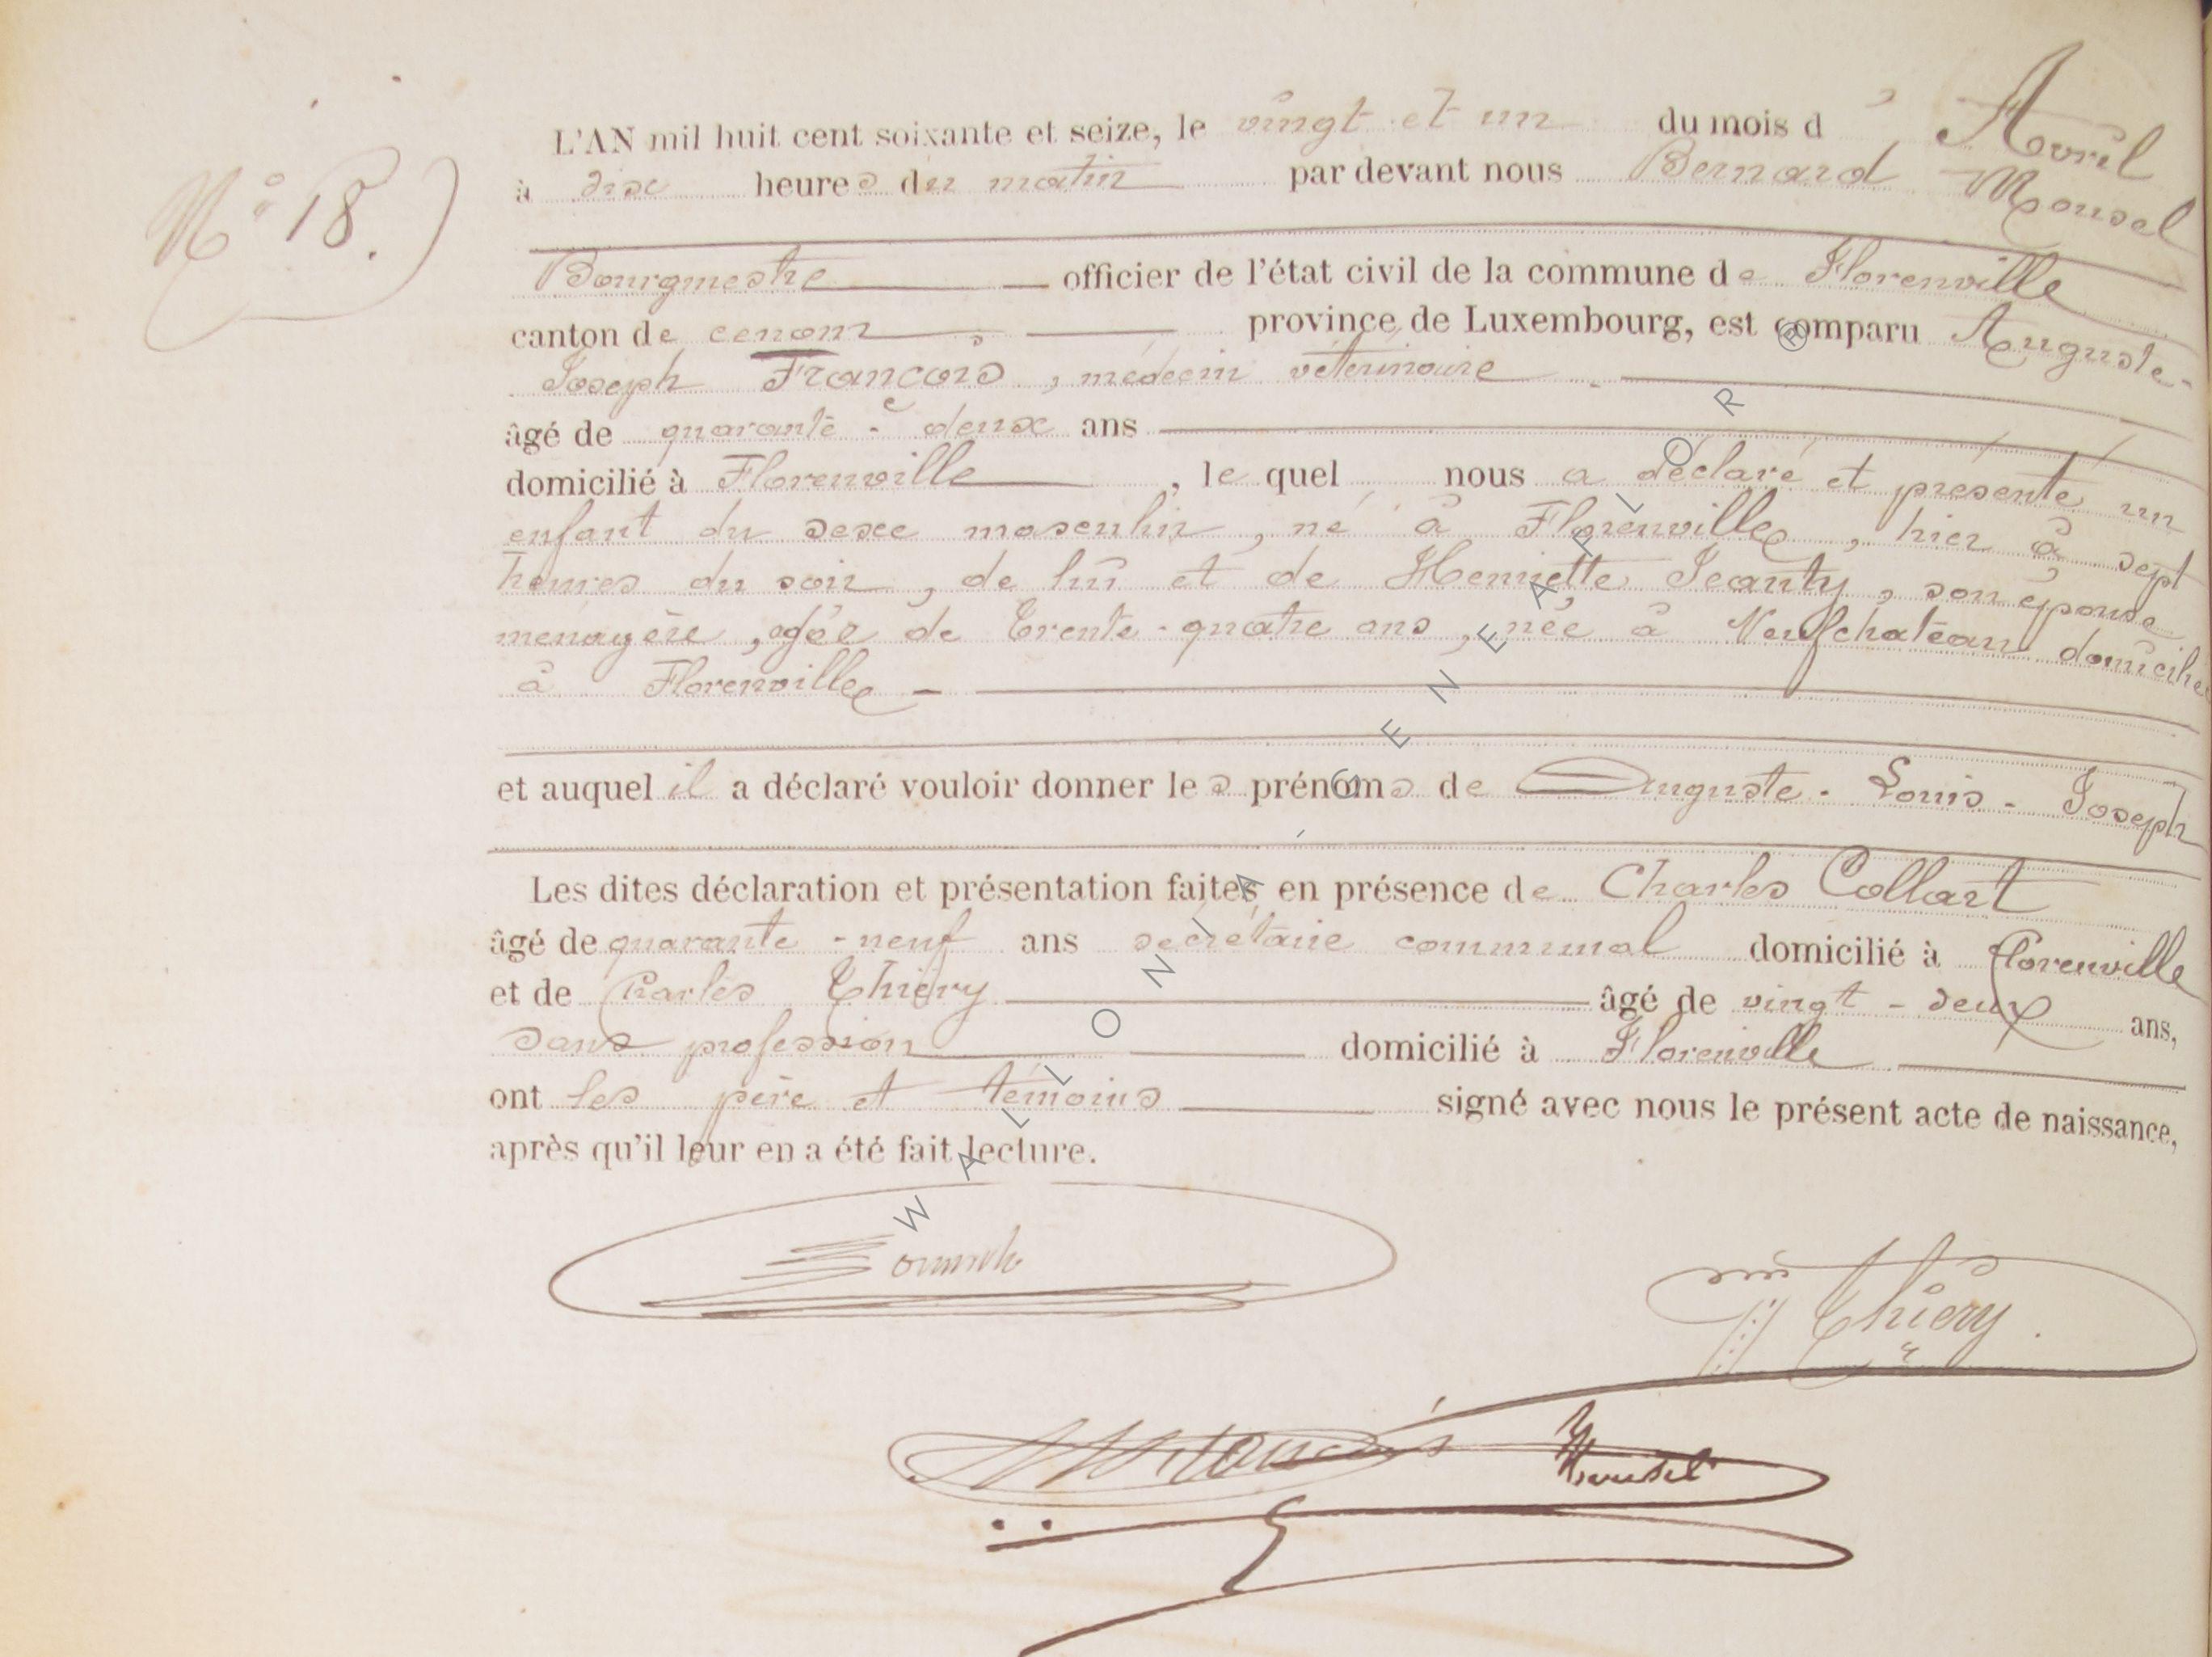 N° 18.
L'AN mil huit cent soixante et seize, le vingt et un du mois d' Avril
à dix heures du matin par devant nous Bernard Mousel
Bourgmestre officier de l'état civil de la commune de Florenville
canton de cenom province de Luxembourg, est comparu Auguste-
Joseph François, médecin vétérinaire
âgé de quarante-deux ans
domicilié à Florenville, le quel nous a déclaré et présenté un
enfant du sexe masculin, né à Florenville, hier à sept
heures du soir, de lui et de Henriette Jeanty, son épouse
ménagère, agée de trente-quatre ans, née à Neufchateau domiciliée
à Florenville -
et auquel il a déclaré vouloir donner les prénoms de Auguste-Louis-Joseph
Les dites déclaration et présentation faites en présence de Charles Collart
âgé de quarante-neuf ans secrétaire communal domicilié à Florenville
et de Charles Thiéry âgé de vingt-deux ans,
sans profession domicilié à Florenville
ont les père et témoins signé avec nous le présent acte de naissance,
après qu'il leur en a été fait lecture.
Thiery
François Mousel
WALLONIA GENEAFLOR ®